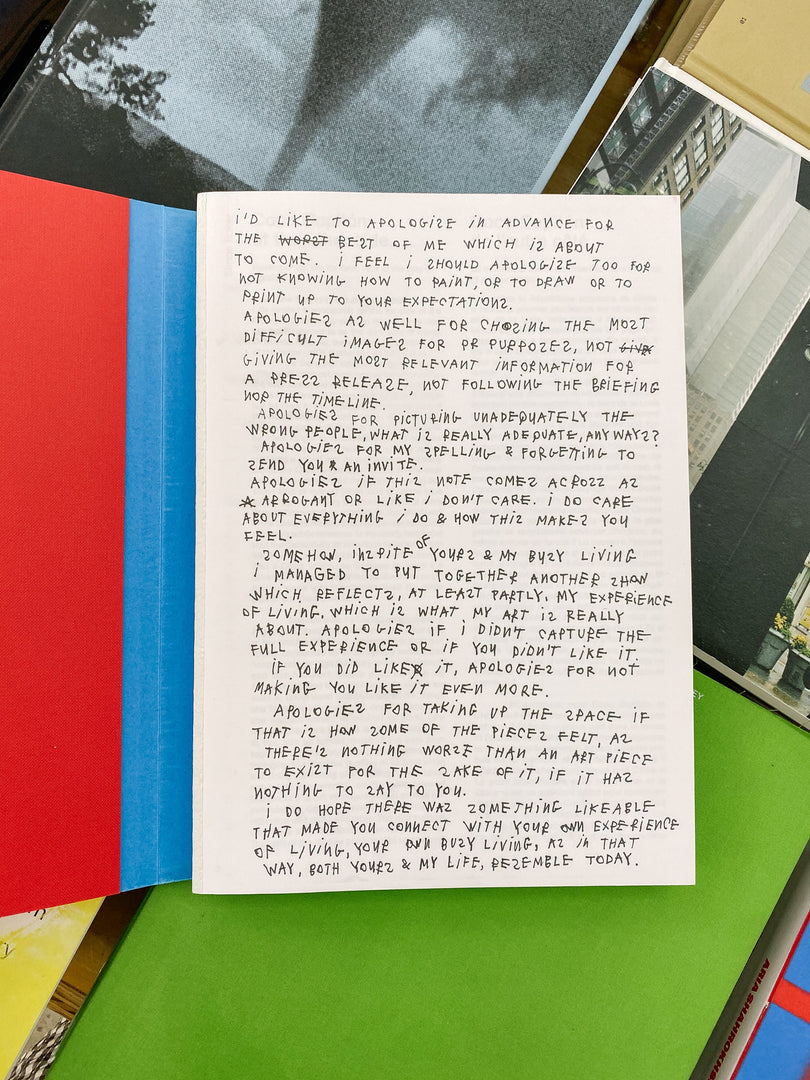 I'D LIKE TO APOLOGISE IN ADVANCE FOR
THE WORST BEST OF ME WHICH IS ABOUT
TO COME. I FEEL I SHOULD APOLOGIZE TOO FOR
NOT KNOWING HOW TO PAINT, OR TO DRAW OR TO
PRINT UP TO YOUR EXPECTATIONS.
APOLOGIES AS WELL FOR CHOSING THE MOST
DIFFICULT IMAGES FOR PR PURPOSES, NOT
GIVING THE MOST RELEVANT INFORMATION FOR
A PRESS RELEASE, NOT FOLLOWING THE BRIEFING
NOR THE TIMELINE.
APOLOGIES FOR PICTURING UNADEQUATELY THE
WRONG PEOPLE, WHAT IS REALLY ADEQUATE, ANYWAYS?
APOLOGIES FOR MY SPELLING & FORGETTING TO
SEND YOU AN INVITE.
APOLOGIES IF THIS NOTE COMES ACROSS AS
ARROGANT OR LIKE I DON'T CARE. I DO CARE
ABOUT EVERYTHING I DO & HOW THIS MAKES YOU
FEEL.
SOMEHOW, INSPITE OF YOURS & MY BUSY LIVING
I MANAGED TO PUT TOGETHER ANOTHER SHOW
WHICH REFLECTS, AT LEAST PARTLY, MY EXPERIENCE
OF LIVING, WHICH IS WHAT MY ART IS REALLY
ABOUT. APOLOGIES IF I DIDN'T CAPTURE THE
FULL EXPERIENCE OR IF YOU DIDN'T LIKE IT.
IF YOU DID LIKE IT, APOLOGIES FOR NOT
MAKING YOU LIKE IT EVEN MORE.
APOLOGIES FOR TAKING UP THE SPACE IF
THAT IS HOW SOME OF THE PIECES FELT, AS
THERE'S NOTHING WORSE THAN AN ART PIECE
TO EXIST FOR THE SAKE OF IT, IF IT HAS
NOTHING TO SAY TO YOU.
I DO HOPE THERE WAS SOMETHING LIKEABLE
THAT MADE YOU CONNECT WITH YOUR OWN EXPERIENCE
OF LIVING, YOUR OWN BUSY LIVING, AS IN THAT
WAY, BOTH YOURS & MY LIFE, RESEMBLE TODAY.